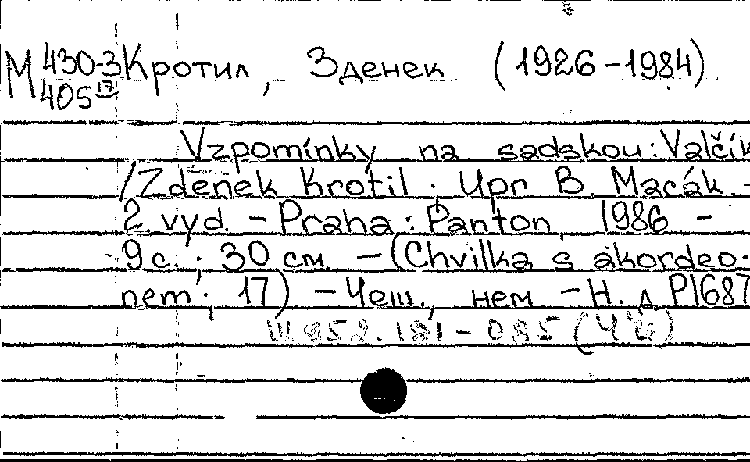 М 430-3 Кротил, Зденек (1926-1984)
405 17
Vzpomínky na sadskou: Valčík
/ Zdeněk Krotil; Upr B. Macák -
2 vyd. - Praha: Panton, 1986 -
9 с.; 30 см. - (Chvilka s akordeo-
nem; 17) - Чеш., нем - Н. д. P1687
Ш 952.181-035 (4Ч6)